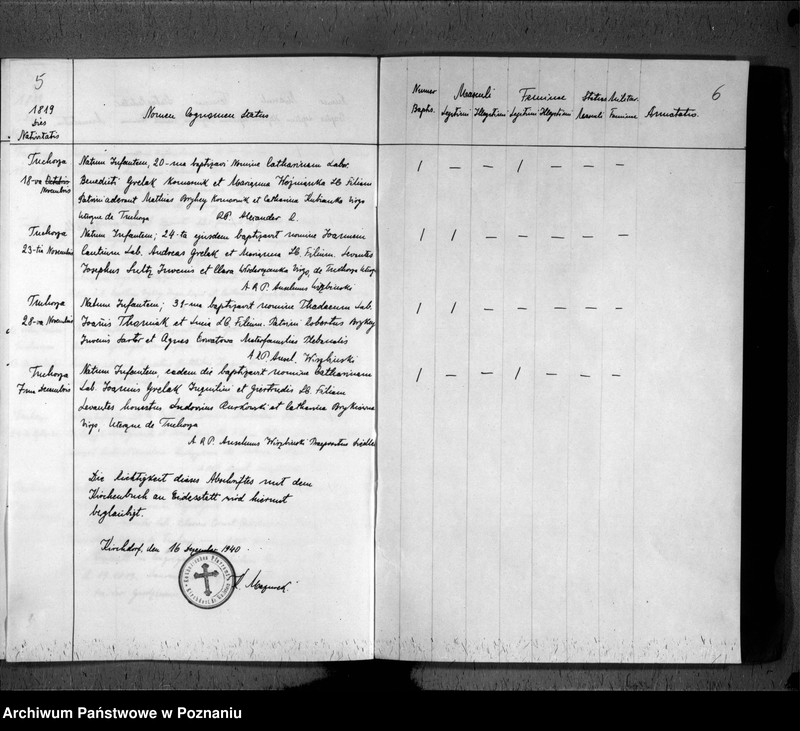 5
1819
Dies
Nativitatis
Nomen Cognomen Status
Tuchorza
18-va Octobris
Novembris
Natum Infantem, 20-ma baptizavi Nomine Catharinam Labr.
Benedicti Grelak Komornik et Marianna Woźnianka LC. Filiam
Patrini aderant Mathias Brykcy Komornik et Catharina Kubianka Virgo
Uterque de Tuchorza RP. Alexander
Tuchorza
23-tia Novembris
Natum Infantem; 24-ta ejusdem baptizavit nomine Joannem
Cantium Lab. Andreas Grelak et Marianna LC. Filium. Levantes
Josephus Sultz Juvenis et Clara Virgo, de Tuchorza Uterque
A R P. Anselmus
Tuchorza
28-va Novembris
Natum Infantem; 31-ma baptizavit nomine Thadaeum Lab.
Joañis et LC. Filium. Patrini Robertus Brykcy
Juvenis Sartor et Agnes Materfamilias Plebanalis
A RP. Ansel.
Tuchorza
Prima Decembris
Natum Infantem, eadem die baptizavit nomine Catharinam
Lab. Joannis Grelak Inquilini et Gertrudis LC. Filiam
Levantes honestus et Catharina
Virgo, Uterque de Tuchorza
A R P. Anselmus Praepositus
Die Richtigkeit dieses Abschriftes mit dem
Kirchenbuch an Eidesstatt wird hiermit
beglaubigt.
Kirchdorf, den 16 Dezember 1940
6
Numer
Bapts.
Masculi
Legitimi Illegitimi
Feminae
Legitimi Illegitimi
Status Militar.
Masculi Feminae
Annotatio.
/ — — / — — —
/ / — — — — —
/ / — — — — —
/ — — / — — —
Archiwum Państwowe w Poznaniu